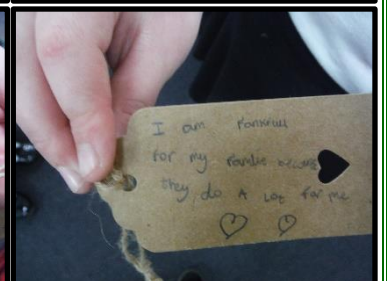 I am Fankfull
for my Familie because
they do A Lot For me